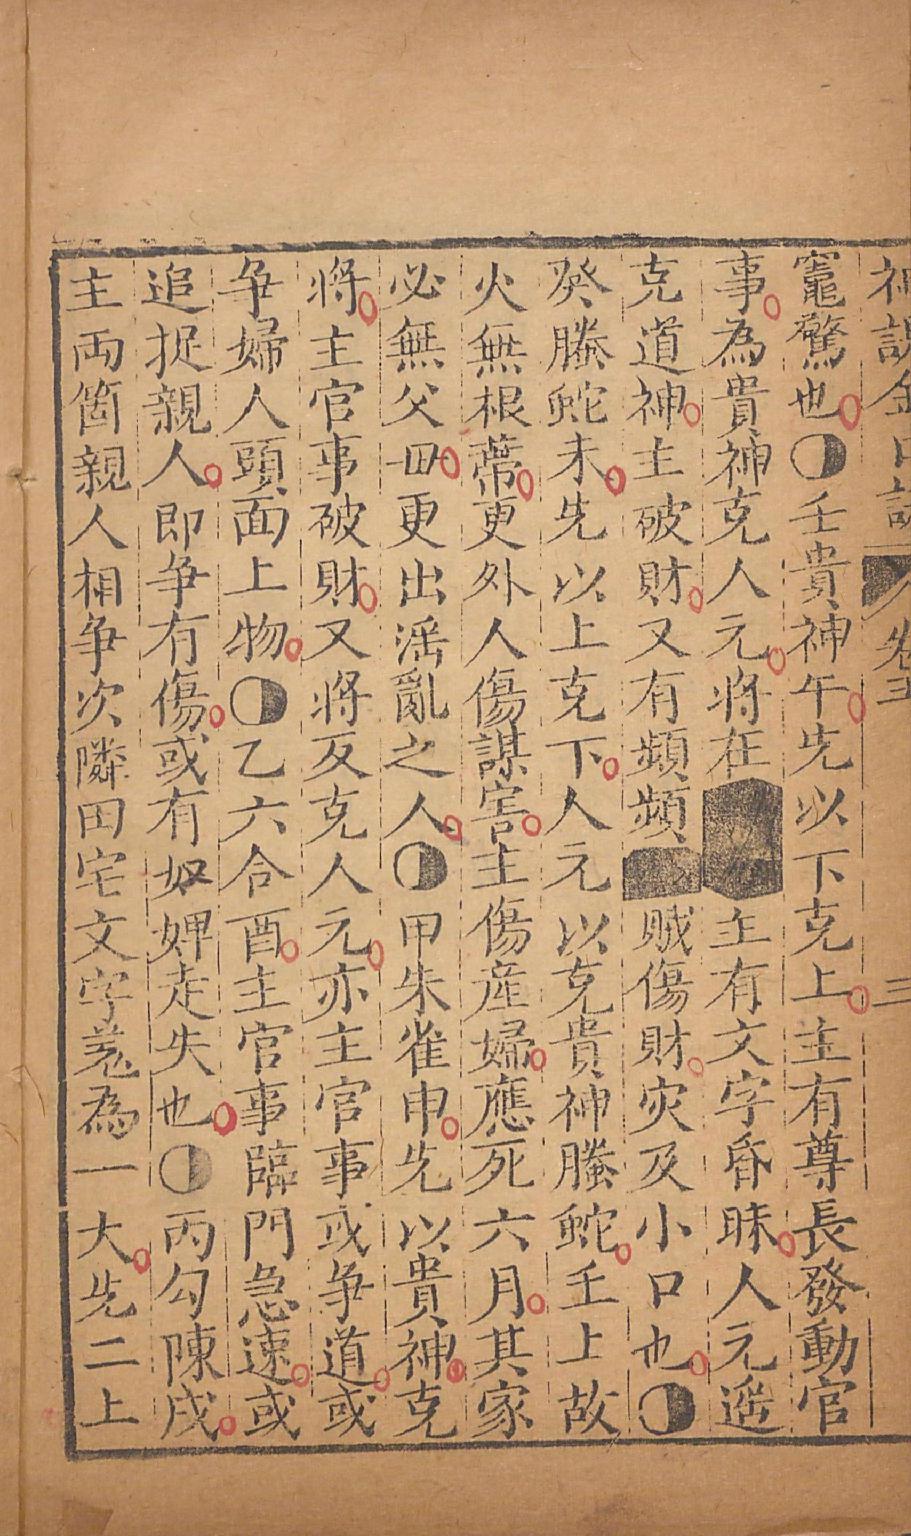 神課金口訣 卷五 三
竈驚也◐壬貴神午先以下克上主有尊長發動官
事為貴神克人元將在主有文字昏昧人元遥
克道神主破財又有頻頻賊傷財灾及小口也◐
癸螣蛇未先以上克下人元以克貴神螣蛇壬上故
火無根蒂更外人傷謀害主傷産婦應死六月其家
必無父毋更出滛亂之人◐甲朱雀申先以貴神克
將主官事破財又將反克人元亦主官事或争道或
争婦人頭面上物◐乙六合酉主官事臨門急速或
追捉親人即争有傷或有奴婢走失也◐丙勾陳戌
主両箇親人相争次隣田宅文字羗為一大先二上